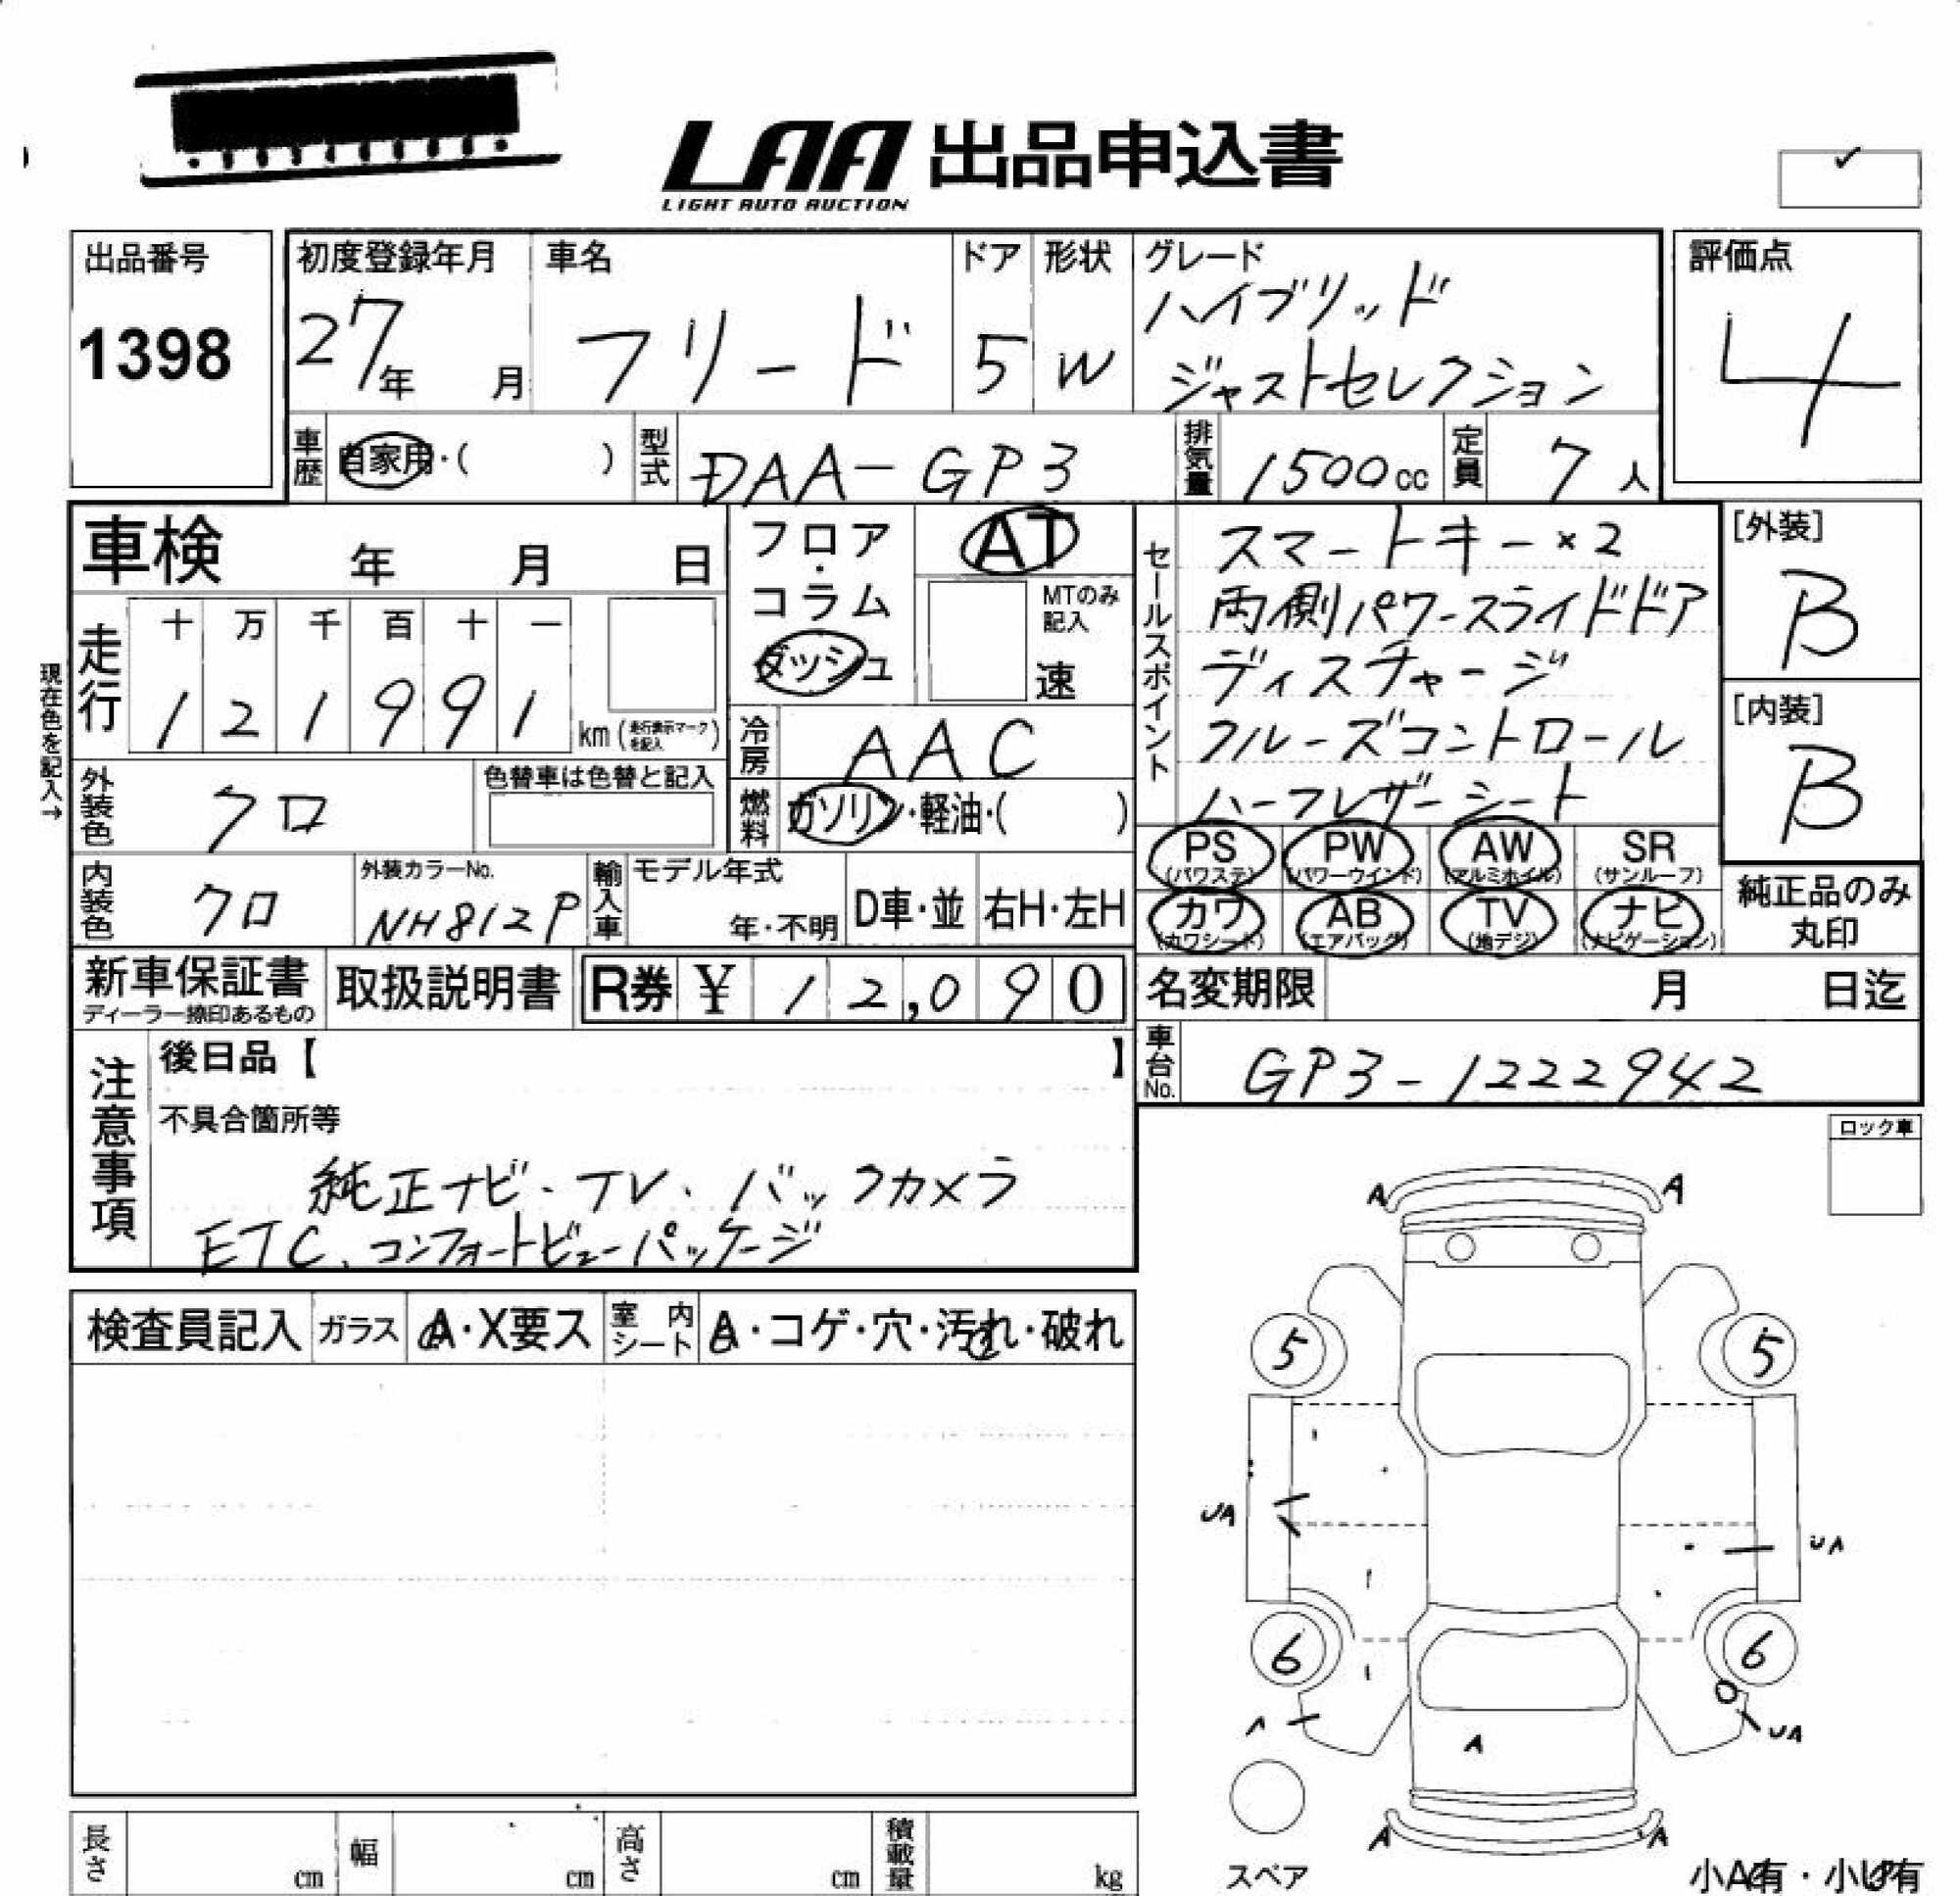 LAA 出品申込書
LIGHT AUTO AUCTION
出品番号
1398
初度登録年月
27年 月
車名
フリード
ドア
5
形状
W
グレード
ハイブリッド
ジャストセレクション
評価点
4
車歴
自家用・( )
型式
DAA-GP3
排気量
1500cc
定員
7人
車検 年 月 日
フロア・
コラム
ダッシュ
AT
MTのみ
記入
速
セールスポイント
スマートキー×2
両側パワースライドドア
ディスチャージ
クルーズコントロール
ハーフレザーシート
[外装]
B
[内装]
B
現在色を記入→
走行
十 万 千 百 十 一
1 2 1 9 9 1
km(走行表示マークを記入)
冷房
AAC
外装色
クロ
色替車は色替と記入
燃料
ガソリン・軽油・( )
PS
(パワステ)
PW
(パワーウインド)
AW
(アルミホイル)
SR
(サンルーフ)
カワ
(カワシート)
AB
(エアバッグ)
TV
(地デジ)
ナビ
(ナビゲーション)
純正品のみ
丸印
内装色
クロ
外装カラーNo.
NH812P
輸入車
モデル年式
年・不明
D車・並
右H・左H
新車保証書
ディーラー捺印あるもの
取扱説明書
R券 ¥ 12,090
名変期限 月 日迄
車台No.
GP3-1222942
注意事項
後日品【 】
不具合箇所等
純正ナビ・TV・バックカメラ
ETC、コンフォートビューパッケージ
ロック車
検査員記入
ガラス
A・X要ス
室内シート
A・コゲ・穴・汚れ・破れ
A A
5 5
UA UA
6 6
A UA
A
A A
スペア
小A有・小U有
長さ cm
幅 cm
高さ cm
積載量 kg